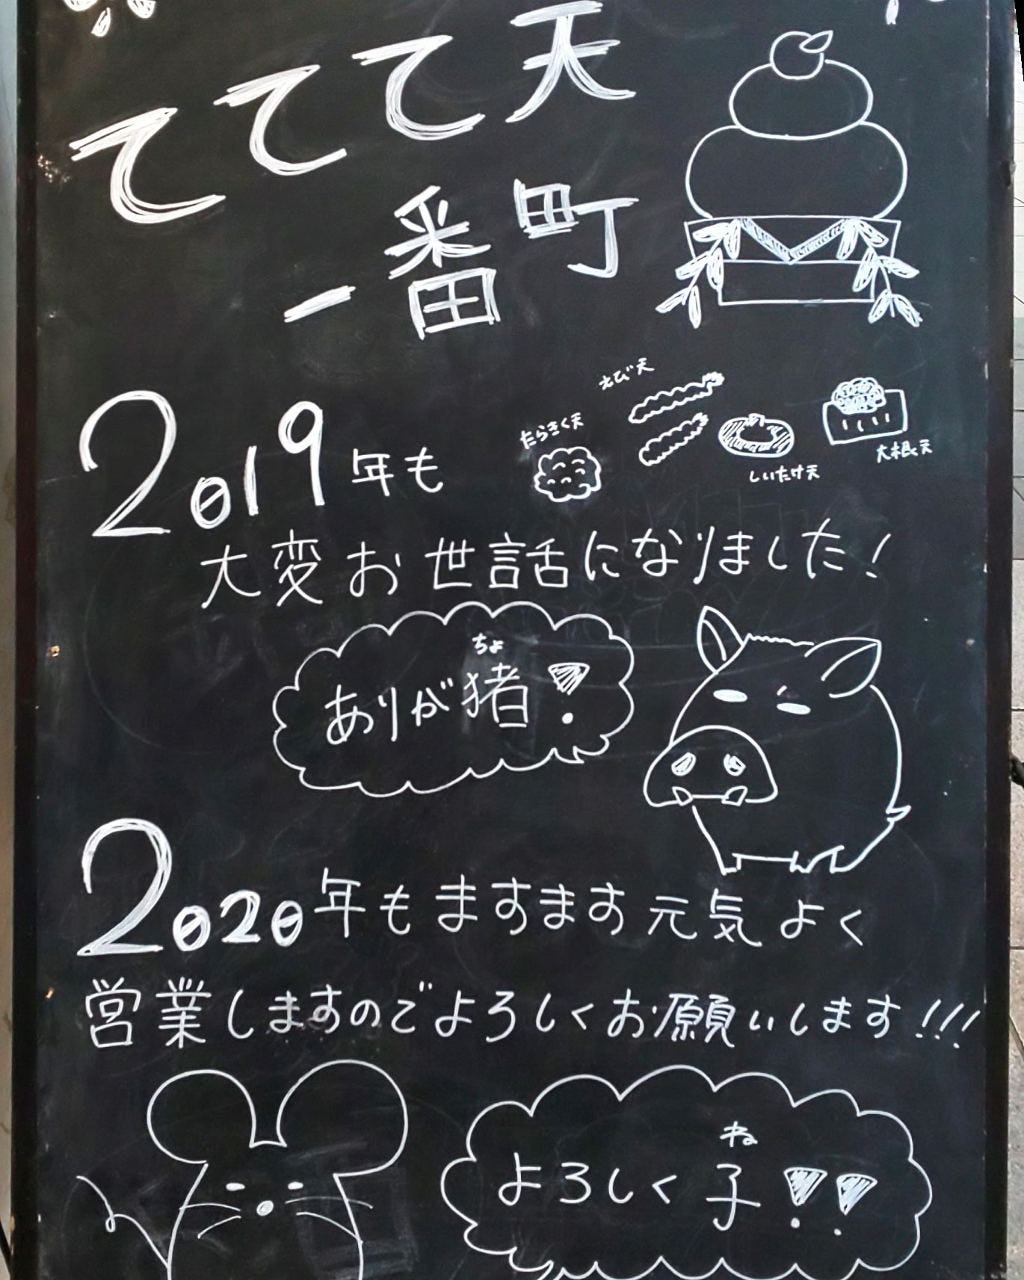 ててて天
一番町
えび天
たらきく天
しいたけ天
大根天
2019年も
大変お世話になりました！
ちょ
ありが猪！
2020年もますます元気よく
営業しますのでよろしくお願いします!!!
ね
よろしく子!!